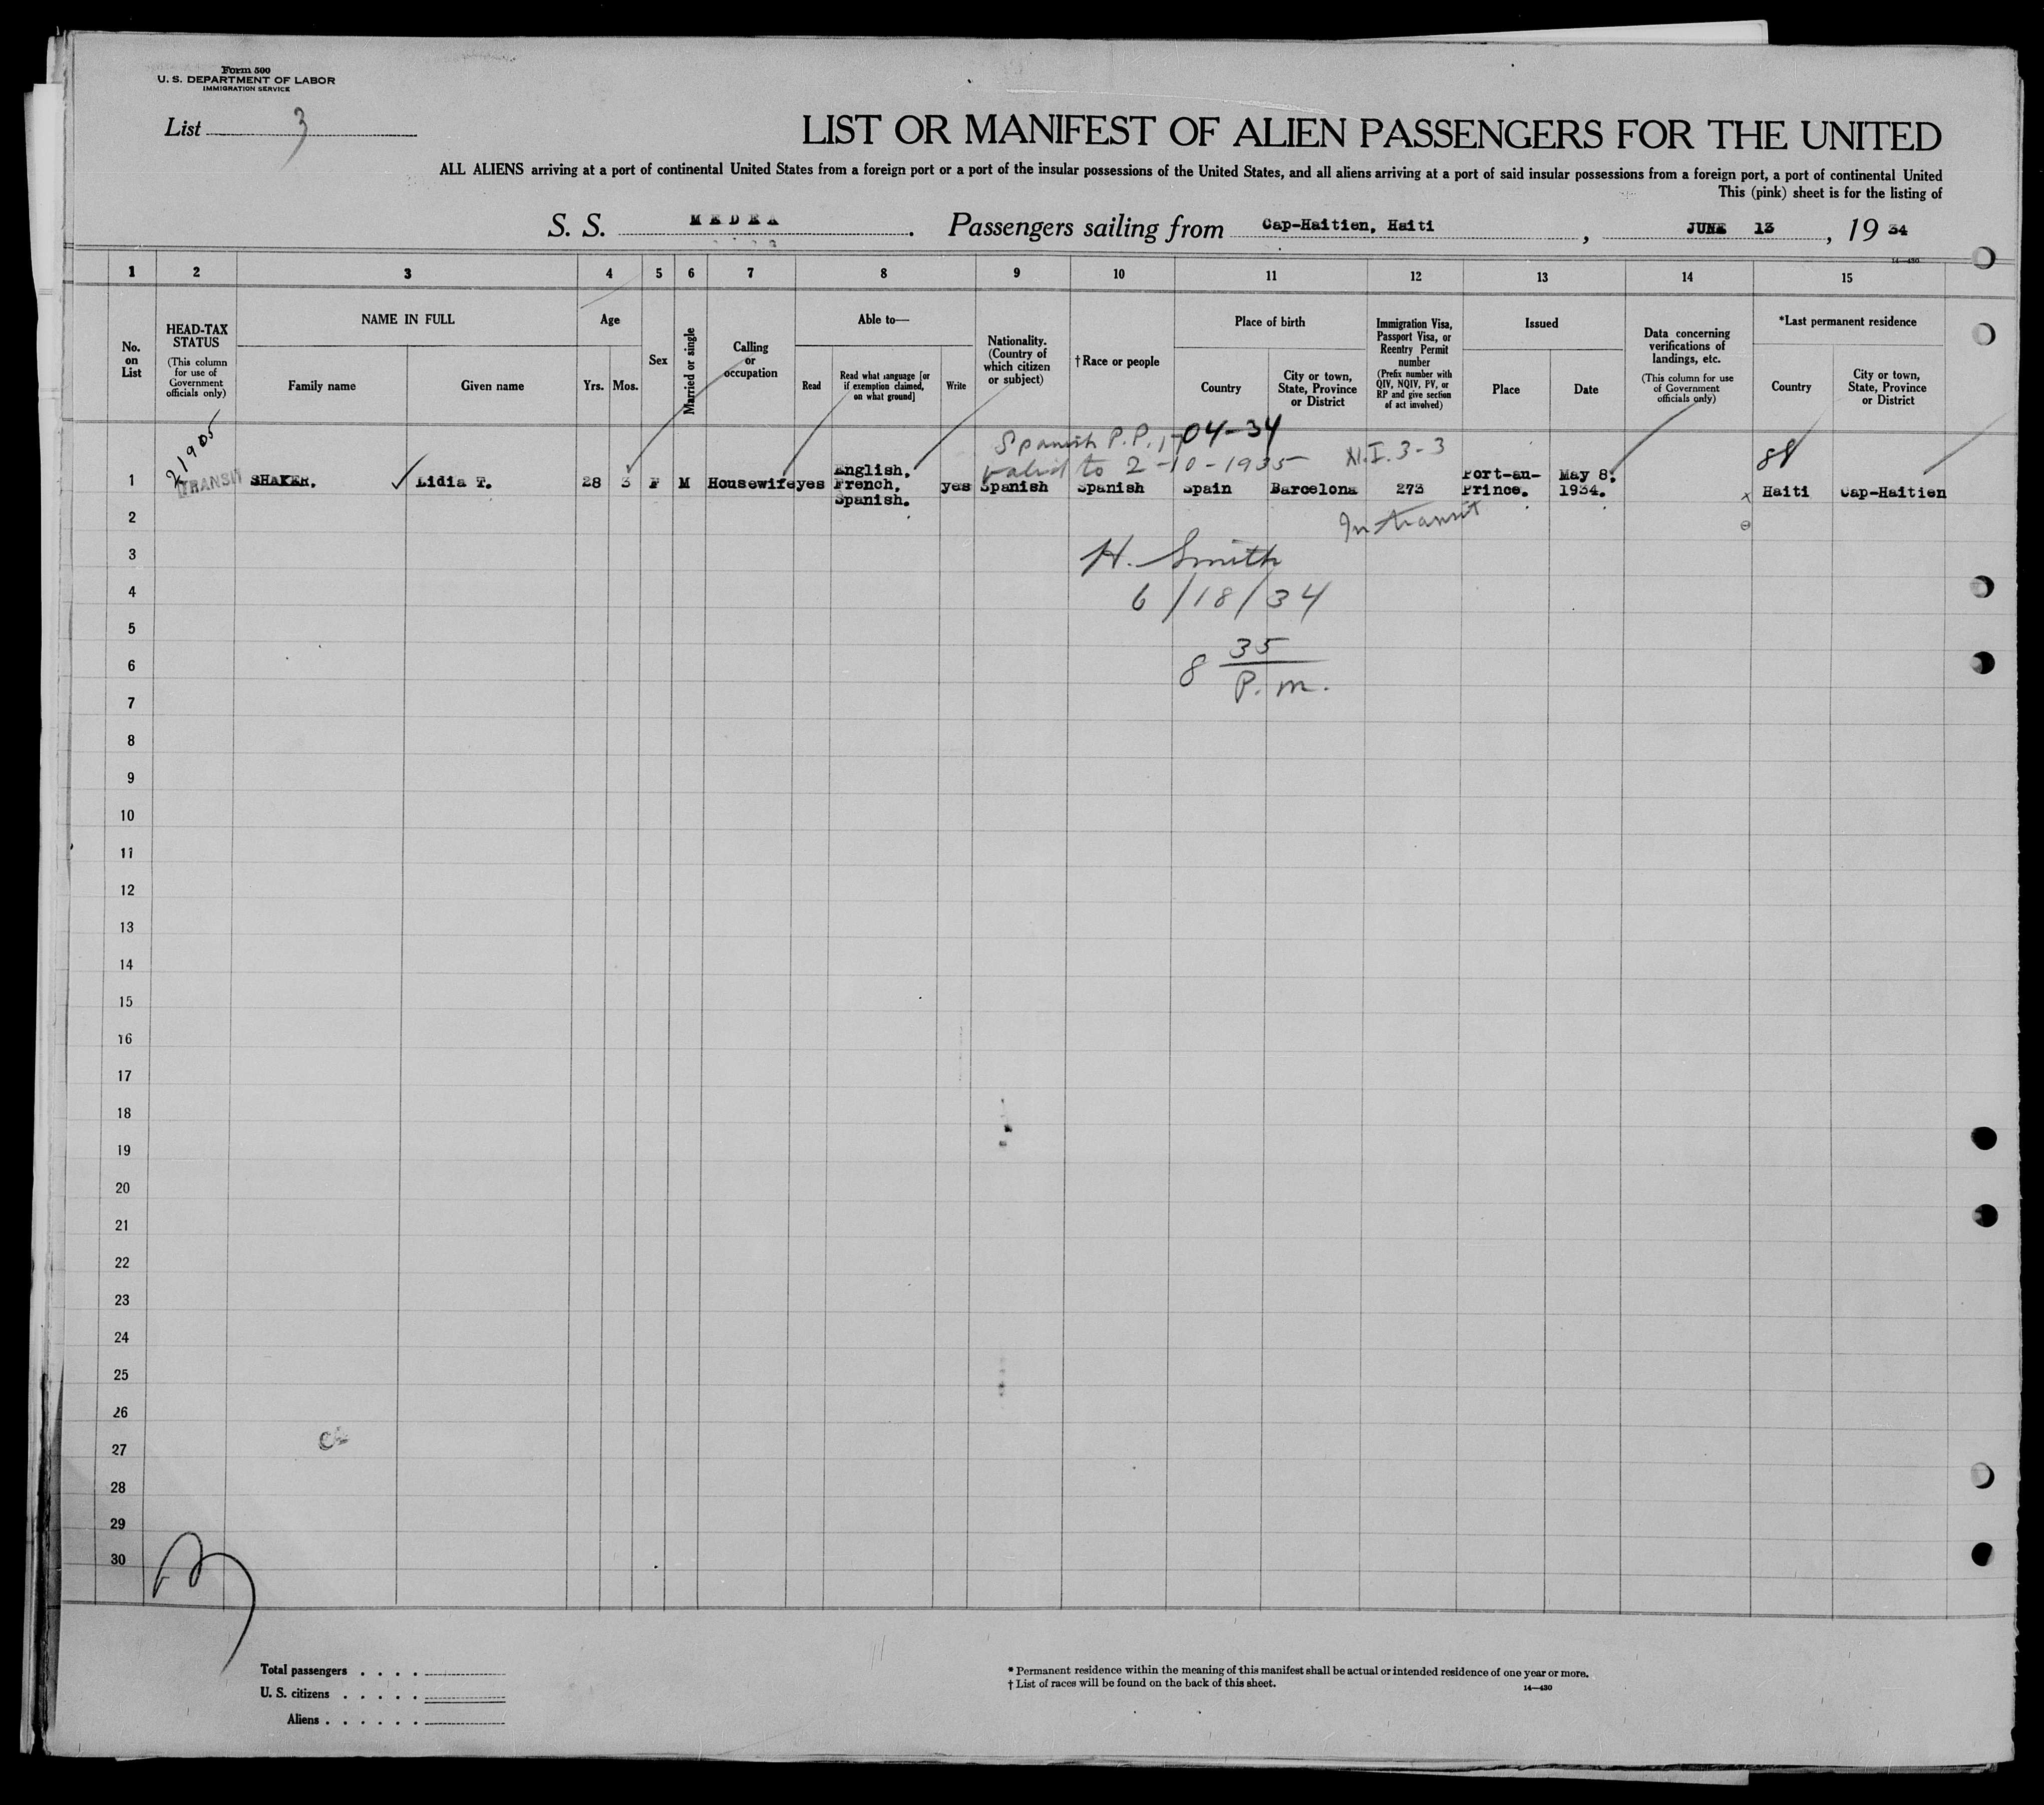 Form 500
U. S. DEPARTMENT OF LABOR
IMMIGRATION SERVICE
List 3
LIST OR MANIFEST OF ALIEN PASSENGERS FOR THE UNITED
ALL ALIENS arriving at a port of continental United States from a foreign port or a port of the insular possessions of the United States, and all aliens arriving at a port of said insular possessions from a foreign port, a port of continental United
This (pink) sheet is for the listing of
S. S. MEDEA. Passengers sailing from Cap-Haitien, Haiti, JUNE 13, 19 34
14—430
1 2 3 4 5 6 7 8 9 10 11 12 13 14 15
No. on List
HEAD-TAX STATUS
(This column for use of Government officials only)
NAME IN FULL
Family name
Given name
Age
Yrs. Mos.
Sex
Married or single
Calling or occupation
Able to—
Read
Read what language [or if exemption claimed, on what ground]
Write
Nationality. (Country of which citizen or subject)
†Race or people
Place of birth
Country
City or town, State, Province or District
Immigration Visa, Passport Visa, or Reentry Permit number
(Prefix number with QIV, NQIV, PV, or RP and give section of act involved)
Issued
Place
Date
Data concerning verifications of landings, etc.
(This column for use of Government officials only)
*Last permanent residence
Country
City or town, State, Province or District
21905
Spanish P.P. 04-34
valid to 2-10-1935
3-3
88
1 TRANSIT SHAKER. Lidia T. 28 3 F M Housewife yes English, French, Spanish. yes Spanish Spanish Spain Barcelona 273 Port-au-Prince. May 8, 1934. x Haiti Cap-Haitien
In transit
2
H. Smith
3
6/18/34
4
5
8 35 P. m.
6
7
8
9
10
11
12
13
14
15
16
17
18
19
20
21
22
23
24
25
26
27
28
29
30
Total passengers . . . .
U. S. citizens . . . . .
Aliens . . . . . .
* Permanent residence within the meaning of this manifest shall be actual or intended residence of one year or more.
† List of races will be found on the back of this sheet.
14—430